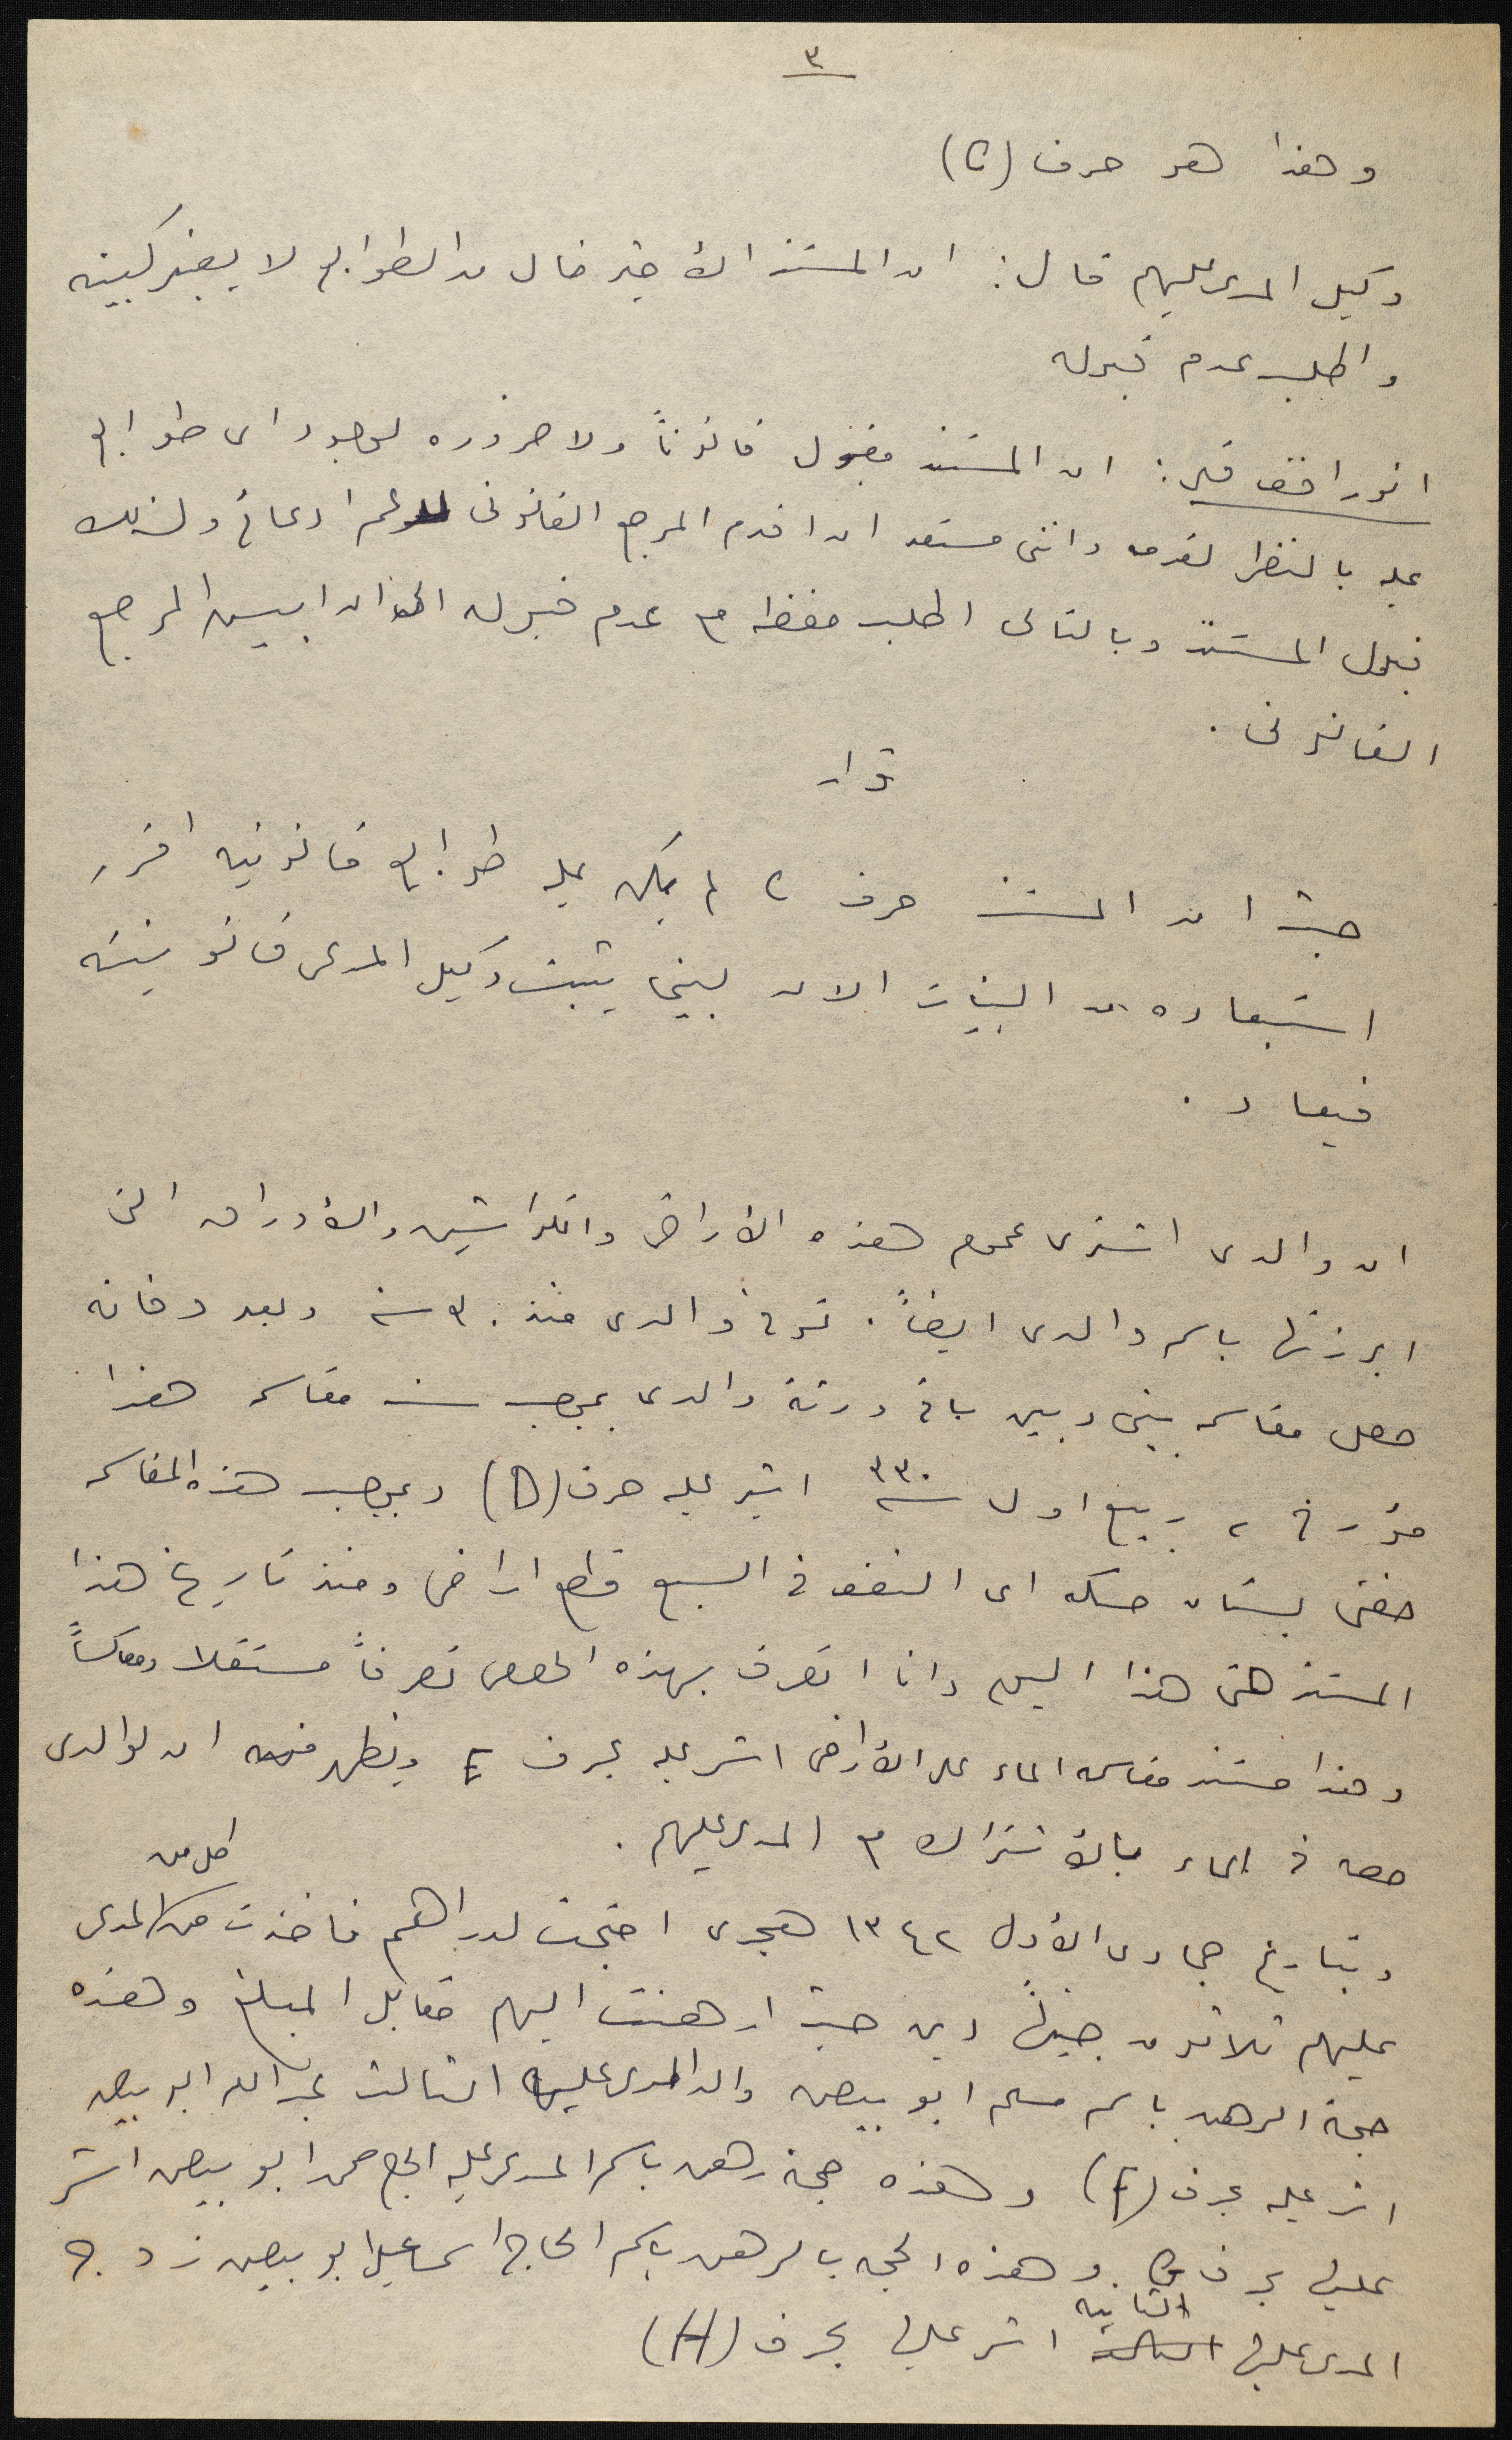 ٣
وهذا هو حرف (C)
وكيل المدعى عليهم قال: ان المستند الأخير خال من الطوابع لا يعتبر كبينه
واطلب عدم قبوله
انور افندي: ان المستند مقبول قانوناً ولا ضروره لوجود اي طوابع
عليه بالنظر لقدمه وانني مستعد ان اقدم المرجع القانوني لدعم ادعائي ولذلك
قبول المستند وبالتالي اطلب حفظه مع عدم قبوله الى ان ابين المرجع
القانوني.
قرار
حيث ان المستند حرف C لم يكن عليه طوابع قانونيه اقرر
استبعاده من البينات الان لبينما يثبت وكيل المدعي قانونيته
فيعاد.
ان والدي اشترى عموم هذه الأراضي والكواشين والأوراق التي
ابرزتها باسم والدي ايضاً. توفي والدي منذ ٣٠ سنه وبعد وفاته
حصل مقاسمه بيني وبين باقي ورثة والدي بموجب سند مقاسمه هذا
مؤرخ ٢ ربيع اول سنة ٣٣٠ اشير عليه حرف (D) وبموجب هذه المقاسمه
خصني بستان حسكه اي النصف في السبع قطع اراضي ومنذ تاريخ هذا
المستند حتى هذا اليوم وانا اتصرف بهذه الحصص تصرفاً مستقلا ومعاكساً
وهذا مستند مقاسمه الماء على الأراضي اشر عليه بحرف E ويظهر منه ان لوالدي
حصه في الماء بالأشتراك مع المدعى عليهم.
وبتاريخ جمادى الأول ١٣٤٢ هجري احتجت لدراهم فاخذت من المدعى
عليهم ثلاثون جنيهاً دين حيث ارهنت اليهم مقابل المبلغ وهذه
حجة الرهن باسم مسلم ابو بيص والد المدعى عليه الثالث عبد الله ابو بيص
اشر عليه بحرف (F) وهذه حجة رهن باسم المدعى عليه الحاج محمد ابو بيص اشر
عليها بحرف G. وهذه الحجه بالرهن باسم الحاج اسماعيل ابو بيص زوج
المدعى عليها الثانيه اشر عليها بحرف (H)